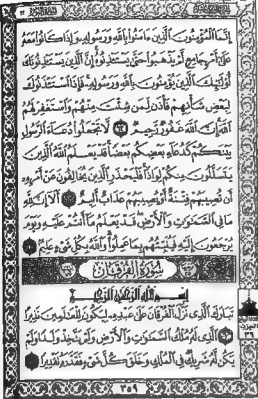 إِنَّمَا الْمُؤْمِنُونَ الَّذِينَ ءَامَنُوا بِاللَّهِ وَرَسُولِهِ وَإِذَا كَانُوا مَعَهُ
عَلَىٰ أَمْرٍ جَامِعٍ لَّمْ يَذْهَبُوا حَتَّىٰ يَسْتَـْٔذِنُوهُ إِنَّ الَّذِينَ يَسْتَـْٔذِنُونَكَ
أُولَٰئِكَ الَّذِينَ يُؤْمِنُونَ بِاللَّهِ وَرَسُولِهِ فَإِذَا اسْتَـْٔذَنُوكَ
لِبَعْضِ شَأْنِهِمْ فَأْذَن لِّمَن شِئْتَ مِنْهُمْ وَاسْتَغْفِرْ لَهُمُ
اللَّهَ إِنَّ اللَّهَ غَفُورٌ رَّحِيمٌ ٦٢ لَّا تَجْعَلُوا دُعَاءَ الرَّسُولِ
بَيْنَكُمْ كَدُعَاءِ بَعْضِكُم بَعْضًا قَدْ يَعْلَمُ اللَّهُ الَّذِينَ
يَتَسَلَّلُونَ مِنكُمْ لِوَاذًا فَلْيَحْذَرِ الَّذِينَ يُخَالِفُونَ عَنْ أَمْرِهِ
أَن تُصِيبَهُمْ فِتْنَةٌ أَوْ يُصِيبَهُمْ عَذَابٌ أَلِيمٌ ٦٣ أَلَا إِنَّ لِلَّهِ
مَا فِي السَّمَٰوَٰتِ وَالْأَرْضِ قَدْ يَعْلَمُ مَا أَنتُمْ عَلَيْهِ وَيَوْمَ
يُرْجَعُونَ إِلَيْهِ فَيُنَبِّئُهُم بِمَا عَمِلُوا وَاللَّهُ بِكُلِّ شَيْءٍ عَلِيمٌ ٦٤
سُورَةُ الْفُرْقَانِ
بِسْمِ اللَّهِ الرَّحْمَٰنِ الرَّحِيمِ
تَبَارَكَ الَّذِي نَزَّلَ الْفُرْقَانَ عَلَىٰ عَبْدِهِ لِيَكُونَ لِلْعَالَمِينَ نَذِيرًا
١ الَّذِي لَهُ مُلْكُ السَّمَٰوَٰتِ وَالْأَرْضِ وَلَمْ يَتَّخِذْ وَلَدًا وَلَمْ
يَكُن لَّهُ شَرِيكٌ فِي الْمُلْكِ وَخَلَقَ كُلَّ شَيْءٍ فَقَدَّرَهُ تَقْدِيرًا ٢
٣٥٩